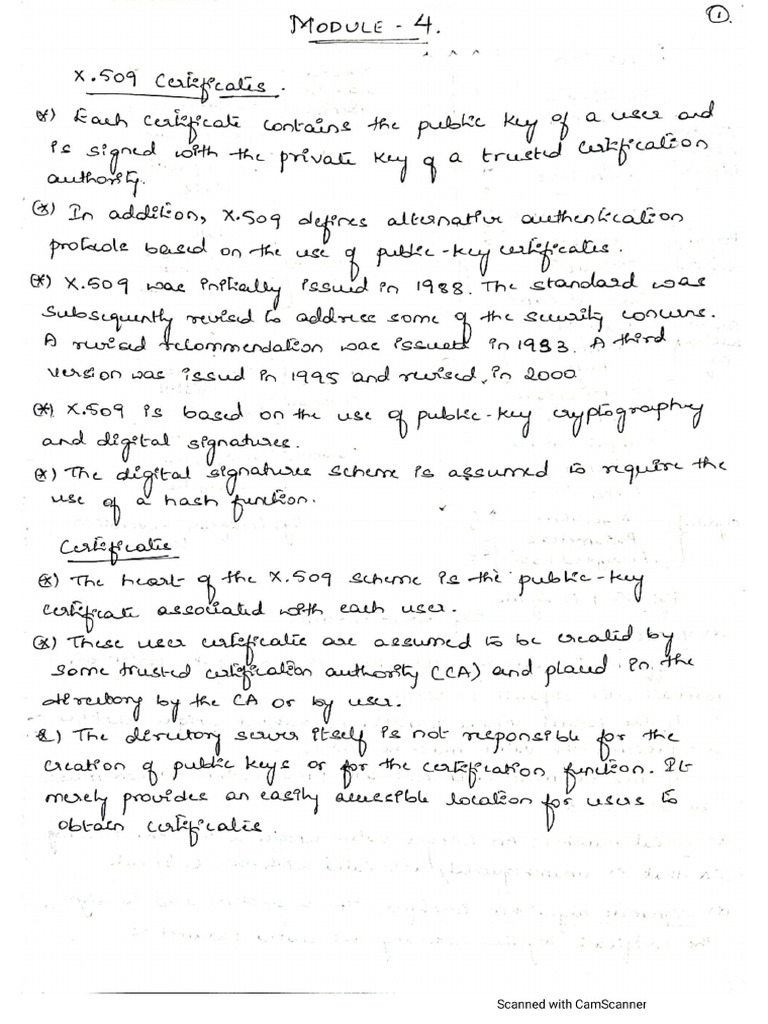 1
MODULE - 4.
X.509 Certificates.
*) Each certificate contains the public key of a user and
is signed with the private key of a trusted certification
authority.
(*) In addition, X.509 defines alternative authentication
protocols based on the use of public-key certificates.
(*) X.509 was initially issued in 1988. The standard was
subsequently revised to address some of the security concerns.
A revised recommendation was issued in 1993. A third
version was issued in 1995 and revised, in 2000
(*) X.509 is based on the use of public-key cryptography
and digital signatures.
(*) The digital signatures scheme is assumed to require the
use of a hash function.
Certificates
(*) The heart of the X.509 scheme is the public-key
certificate associated with each user.
(*) These user certificates are assumed to be created by
some trusted certification authority (CA) and placed in the
directory by the CA or by user.
*) The directory server itself is not responsible for the
creation of public keys or for the certification function. It
merely provides an easily accessible location for users to
obtain certificates.
Scanned with CamScanner